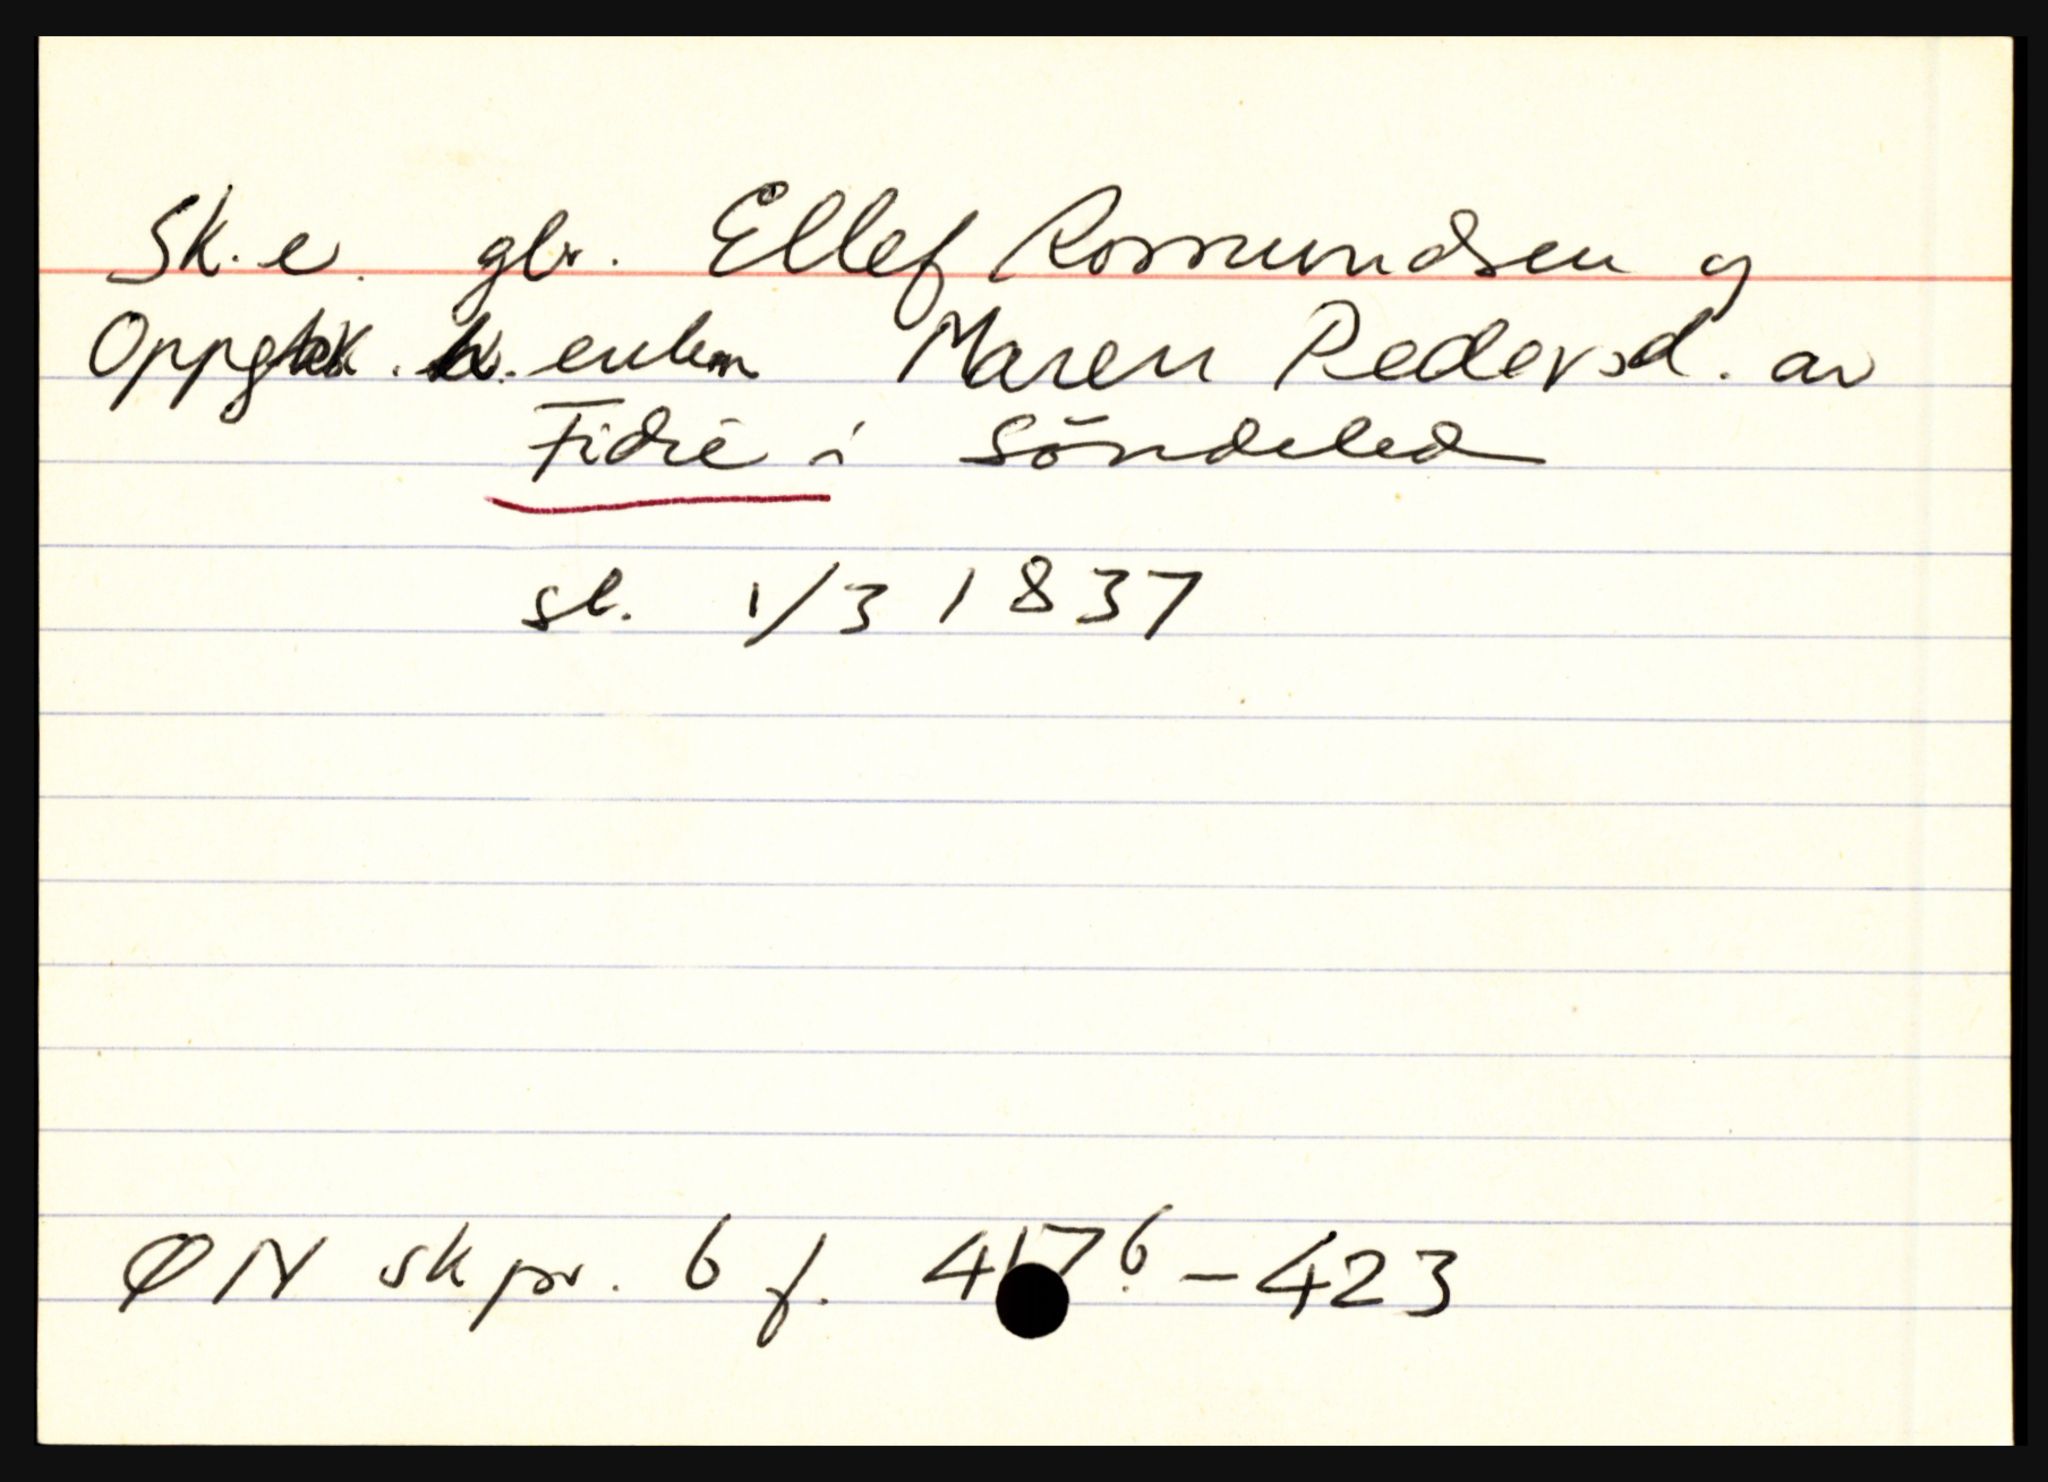 Sk. e. gbr. Ellef Rosmundsen og
Oppg. sk. enken Maren Pedersd. av
Fidie i Söndeled
sl. 1/3 1837
ØN skpr. 6 f. 417b – 423